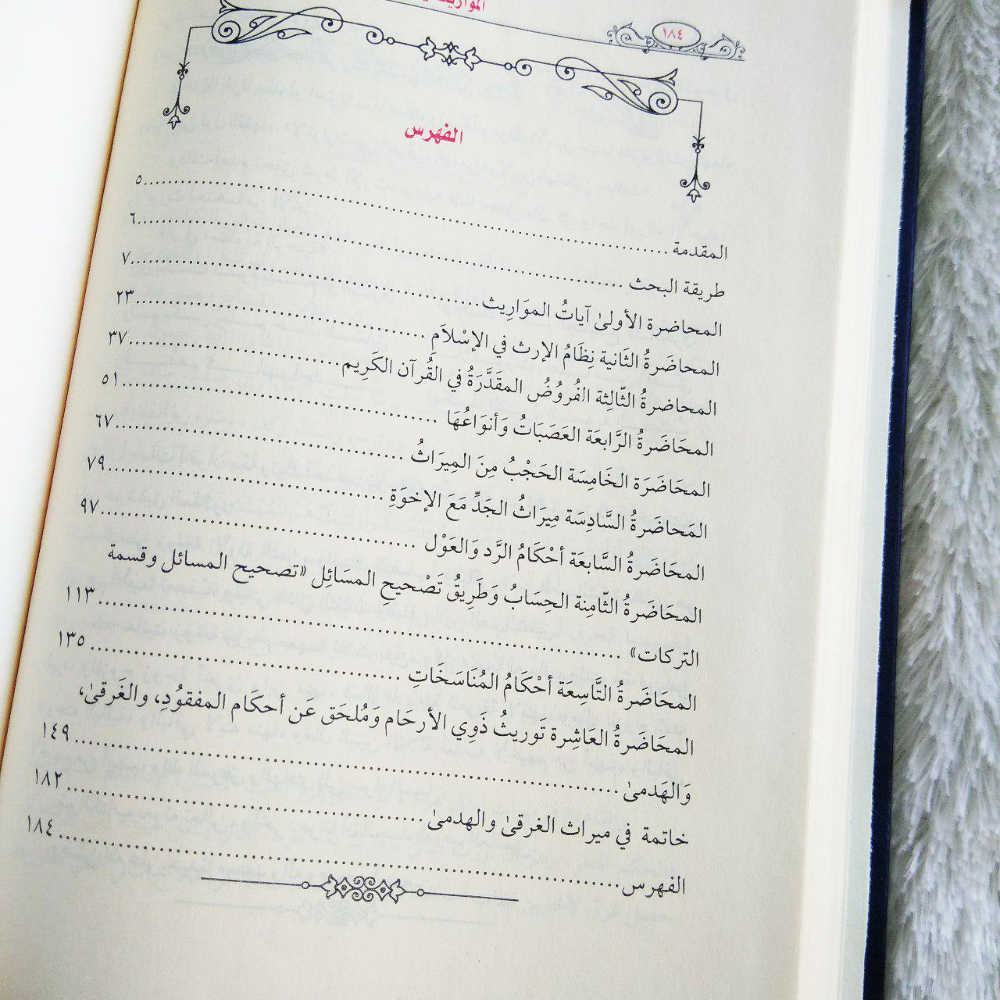 ١٨٤
الفهرس
المقدمة ..... ٥
طريقة البحث ..... ٦
المحاضرة الأولىٰ آياتُ الموَارِيث ..... ٧
المحاضَرةُ الثَانية نِظَامُ الإرث في الإسْلاَمِ ..... ٢٣
المحاضرةُ الثّالِثة الفُروُضُ المقَدَّرَةُ في القُرآن الكَرِيم. ..... ٣٧
المحَاضَرةُ الرَّابعَة العَصَبَاتُ وَأنوَاعُهَا ..... ٥١
المحَاضَرَة الخَامِسَة الحَجْبُ مِنَ المِيرَاثُ ..... ٦٧
المَحَاضَرةُ السَّادِسَة مِيرَاثُ الجَدِّ مَعَ الإخوَةِ ..... ٧٩
المحَاضَرةُ السَّابعَة أحْكَامُ الرَّد وَالعَوْل ..... ٩٧
المحَاضَرةُ الثَّامِنة الحِسَابُ وَطَرِيقُ تَصْحيحِ المسَائِل «تصحيح المسائل وقسمة
التركات» ..... ١١٣
المحَاضَرةُ التَّاسِعَة أحْكَامُ المُنَاسَخَاتِ ..... ١٣٥
المحَاضَرةُ العَاشِرة تَوريثُ ذَوِي الأرحَام وَمُلحَق عَن أحكَام المفقوُدِ، والغَرقىٰ،
وَالهَدمىٰ ..... ١٤٩
خاتمة في ميراث الغرقىٰ والهدمىٰ ..... ١٨٢
الفهرس ..... ١٨٤